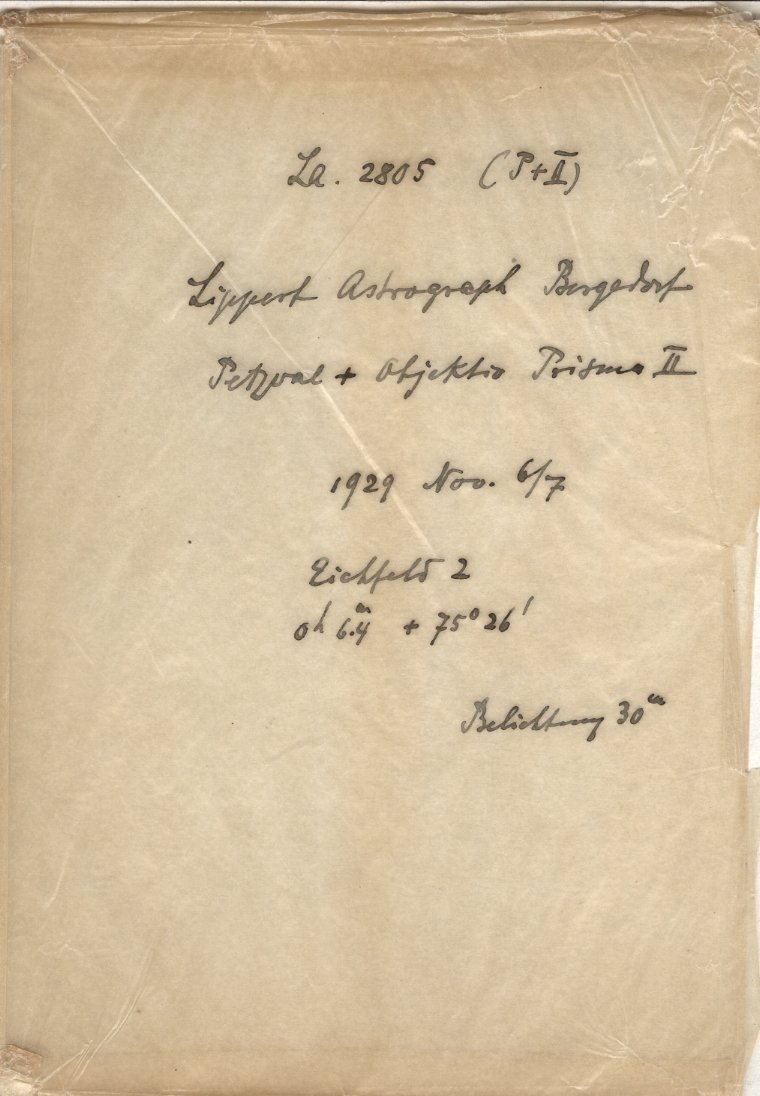 La. 2805 (P+II)
Lippert Astrograph Bergedorf
Petzval + Objektiv Prisma II
1929 Nov. 6/7
Eichfeld 2
0h 6.4m + 75° 26'
Belichtung 30m